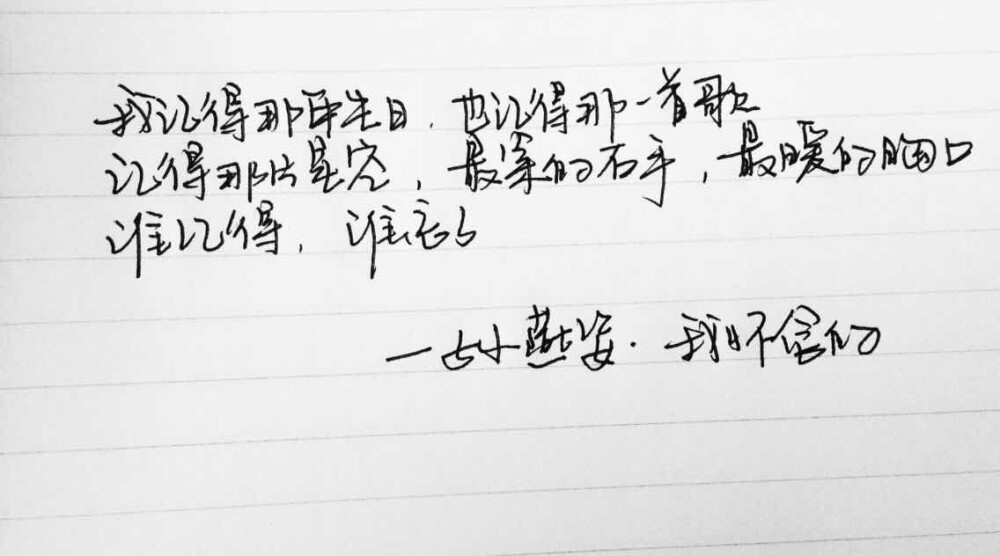 我记得那年生日，也记得那一首歌
记得那片星空，最紧的右手，最暖的胸口
谁记得，谁忘了
—孙燕姿·我怀念的